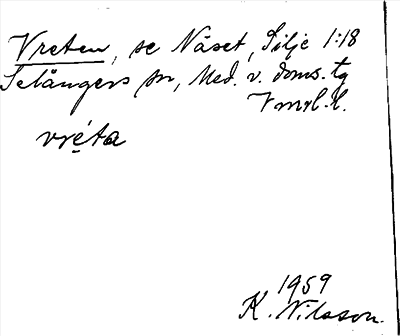 Vreten, se Näset, Silje 1:18
Selångers sn, Med. v. doms. tg
Vmrl. l.
vrę́ta
1959
K. Nilsson.